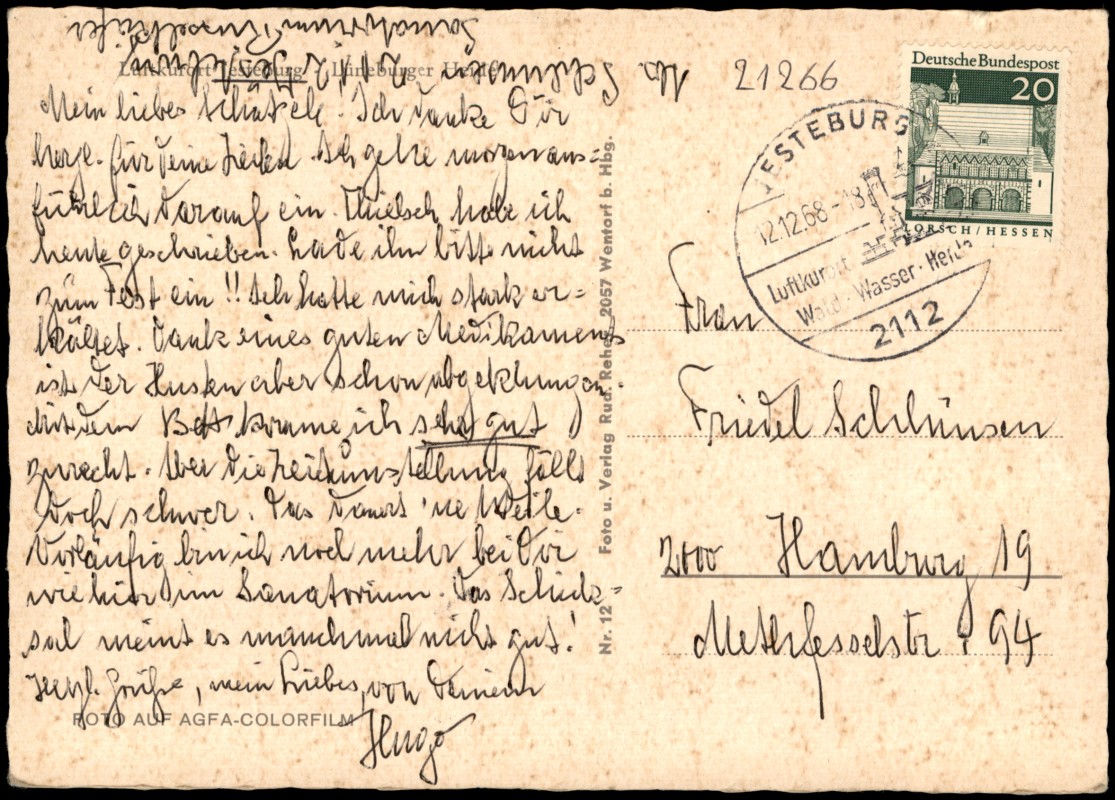 Luftkurort Jesteburg / Lüneburger Heide
Abs. Schlünsen
2112 Jesteburg
Sanatorium
21266
Mein liebes Schätzele! Ich danke Dir
herzl. für Deine Zeilen. Ich gehe morgen aus=
führlich darauf ein. Thielsch habe ich
heute geschrieben. Lade ihn bitte nicht
zum Fest ein!! Ich hatte mich stark er=
kältet. Dank eines guten Medikaments
ist der Husten aber schon abgeklungen.
Mit dem Bett komme ich sehr gut
zurecht. Aber die Zeitumstellung fällt
doch schwer. Das dauert 'ne Weile.
Vorläufig bin ich noch mehr bei Dir
wie hier im Sanatorium. Das Schick=
sal meint es manchmal nicht gut!
Herzl. Grüße, mein Liebes, von Deinem
Hugo
FOTO AUF AGFA-COLORFILM
Nr. 12 Foto u. Verlag Rud. Reher, 2057 Wentorf b. Hbg.
Deutsche Bundespost
20
LORSCH/HESSEN
JESTEBURG
12.12.68-18
Luftkurort
Wald · Wasser · Heide
2112
Frau
Friedel Schlünsen
2000 Hamburg 19
Methfesselstr. 94